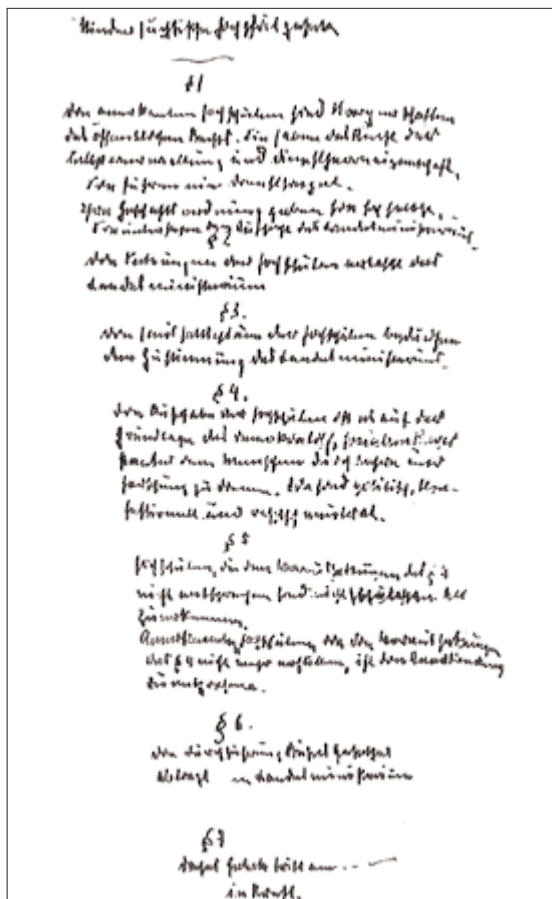 Niedersächsisches Hochschulgesetz
§ 1
Die anerkannten Hochschulen sind Körperschaften
des öffentlichen Rechts. Sie haben das Recht der
Selbstverwaltung und Dienstherreneigenschaft.
Sie führen ein Dienstsiegel.
Ihre Geschäftsordnung geben sie sich selbst.
Sie unterstehen der Aufsicht des Landesministeriums.
§ 2
Die Satzungen der Hochschulen erlässt das
Landesministerium
§ 3.
Die Haushaltspläne der Hochschulen bedürfen
der Zustimmung des Landesministeriums.
§ 4.
Die Aufgabe der Hochschulen ist es auf der
Grundlage des demokratisch,
dem Menschen durch Lehre und
Forschung zu dienen. Sie sind politisch, kon-
fessionell und neutral.
§ 5
Hochschulen, die den Voraussetzungen des § 4
nicht entsprechen sind nicht
zuerkennen.
Hochschulen, die den Voraussetzungen
des § 4 nicht mehr, ist die Anerkennung
zu entziehen.
§ 6.
Die Durchführung dieses Gesetzes
obliegt Landesministerium
§ 7
Dieses Gesetz tritt am ...
in Kraft.